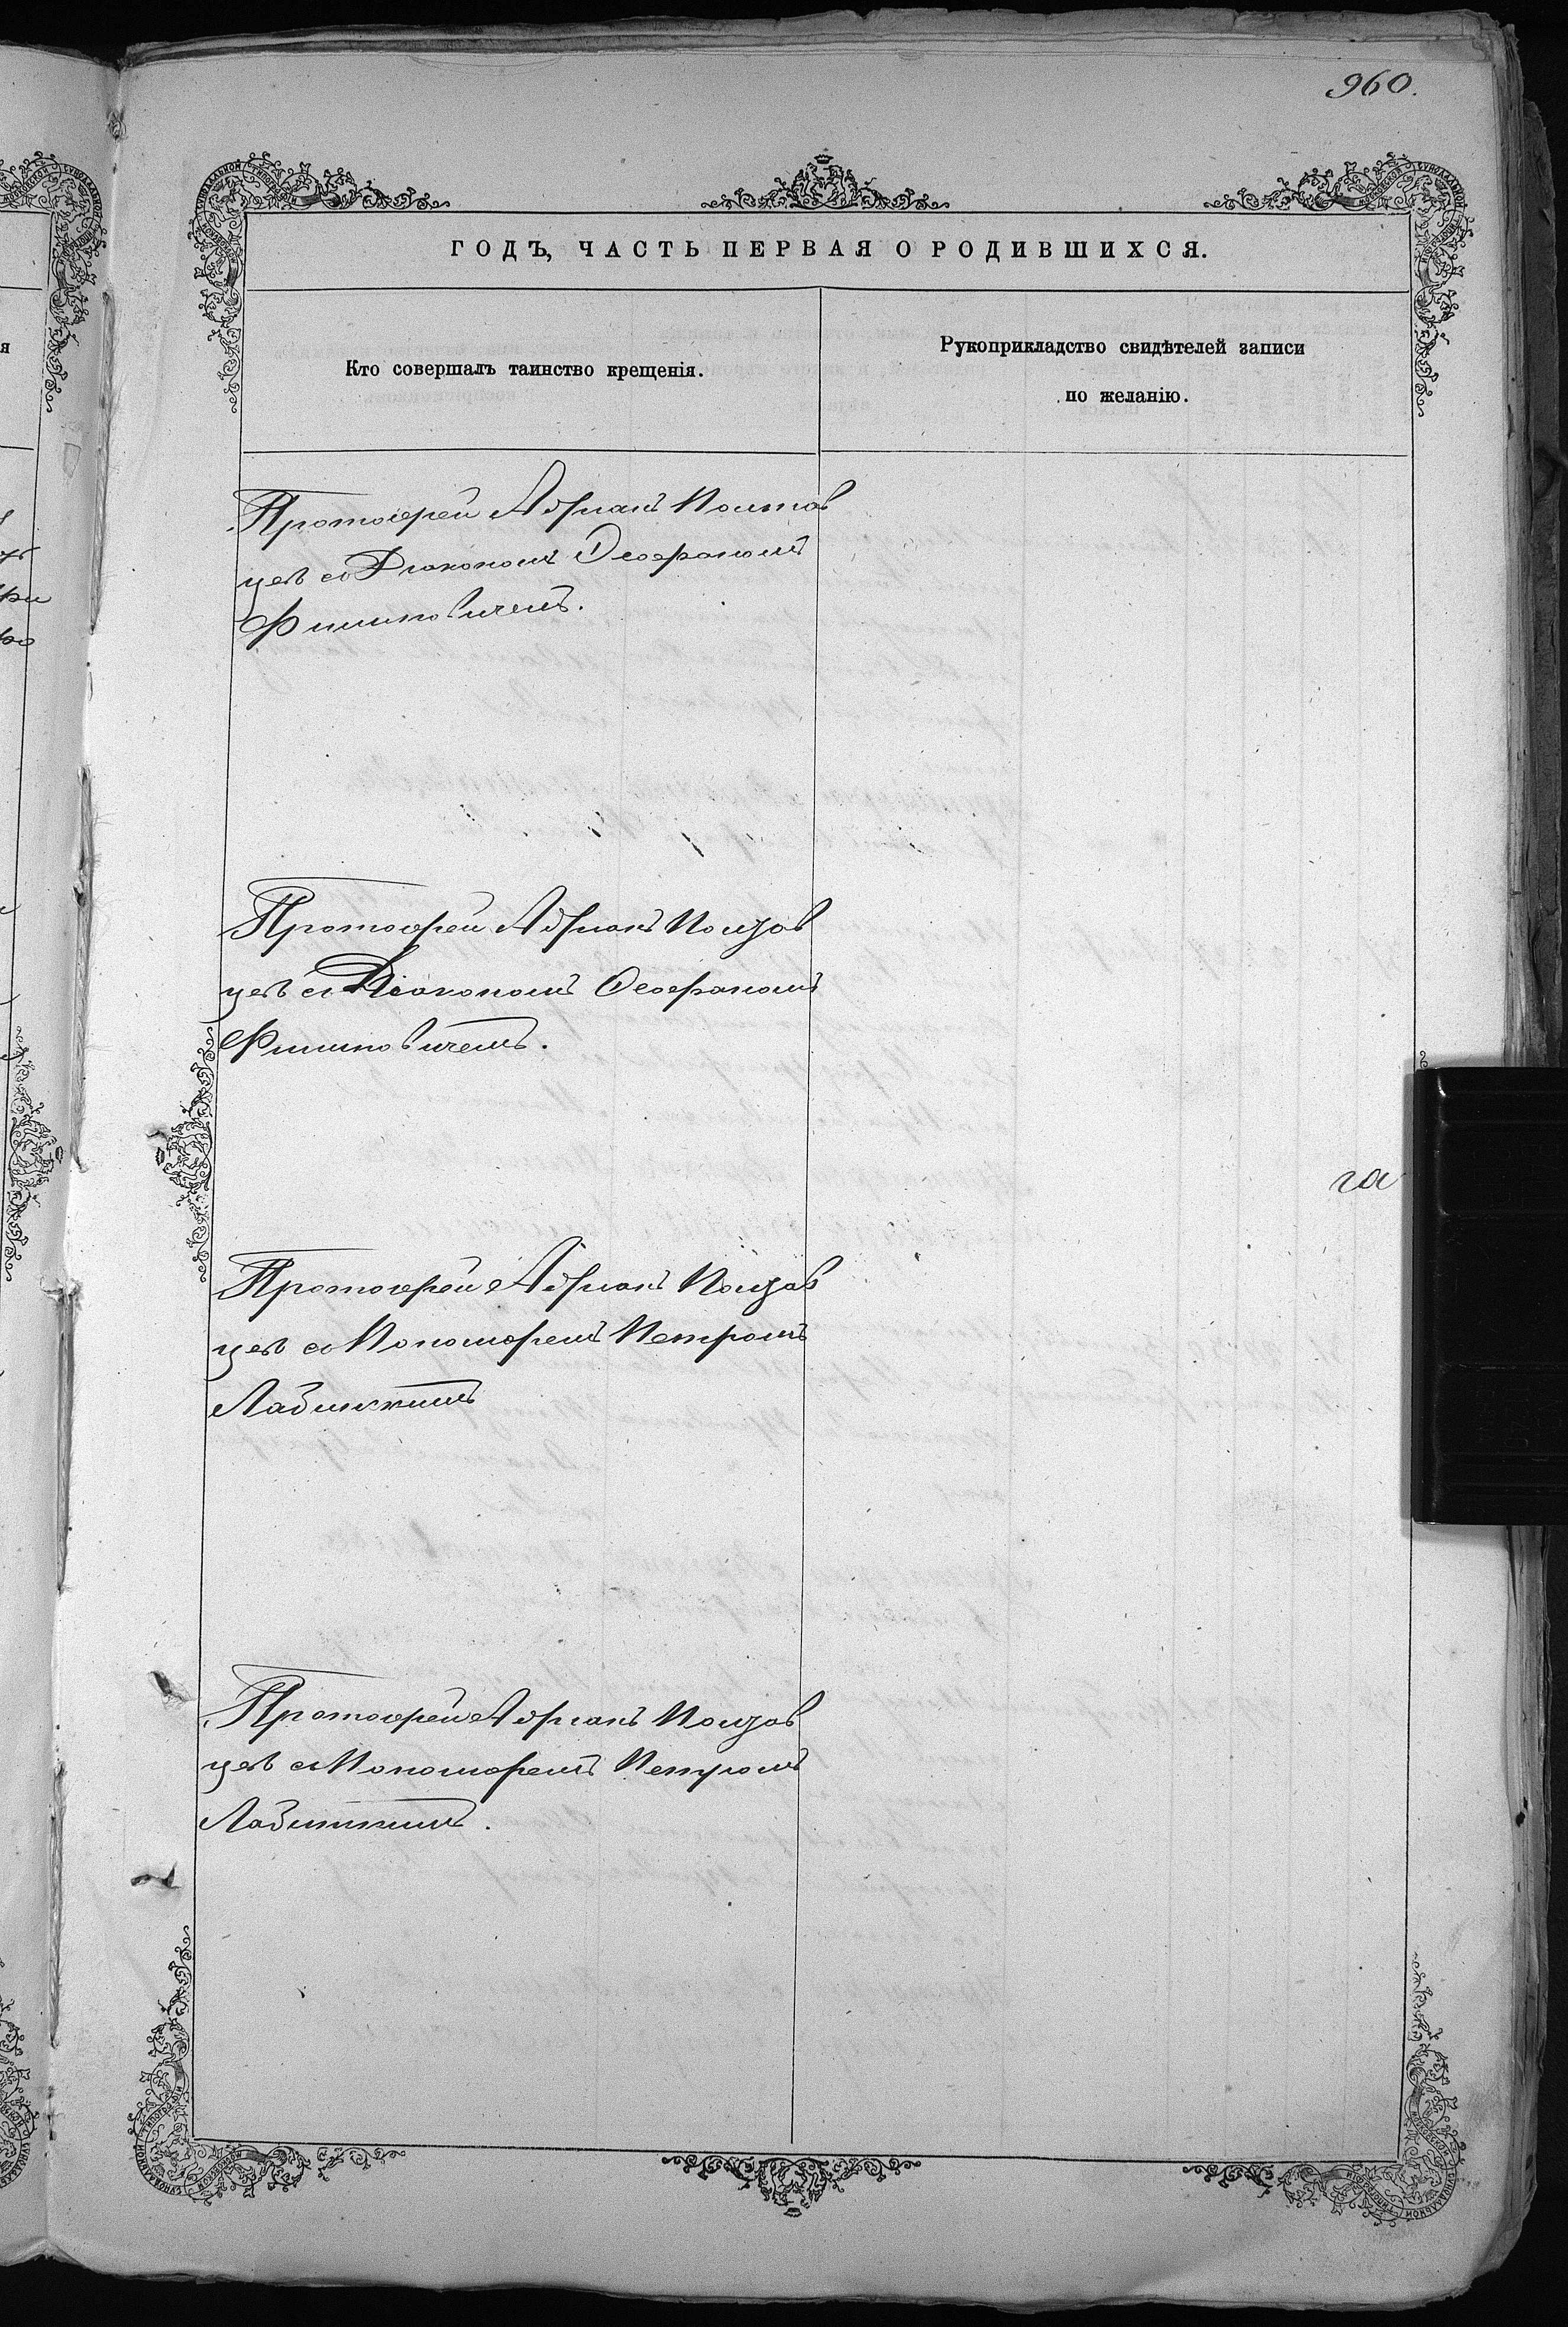 960.
ГОДЪ, ЧАСТЬ ПЕРВАЯ О РОДИВШИХСЯ.
Кто совершалъ таинство крещенія.
Рукоприкладство свидѣтелей записи
по желанію.
Протоіерей Адріанъ
цевъ съ Діакономъ Ѳеофаномъ
Филиповичемъ.
Протоіерей Адріанъ
цевъ съ Діакономъ Ѳеофаномъ
Филиповичемъ.
Протоіерей Адріанъ
цевъ съ Пономаремъ Петромъ
Протоіерей Адріанъ
цевъ съ Пономаремъ Петромъ